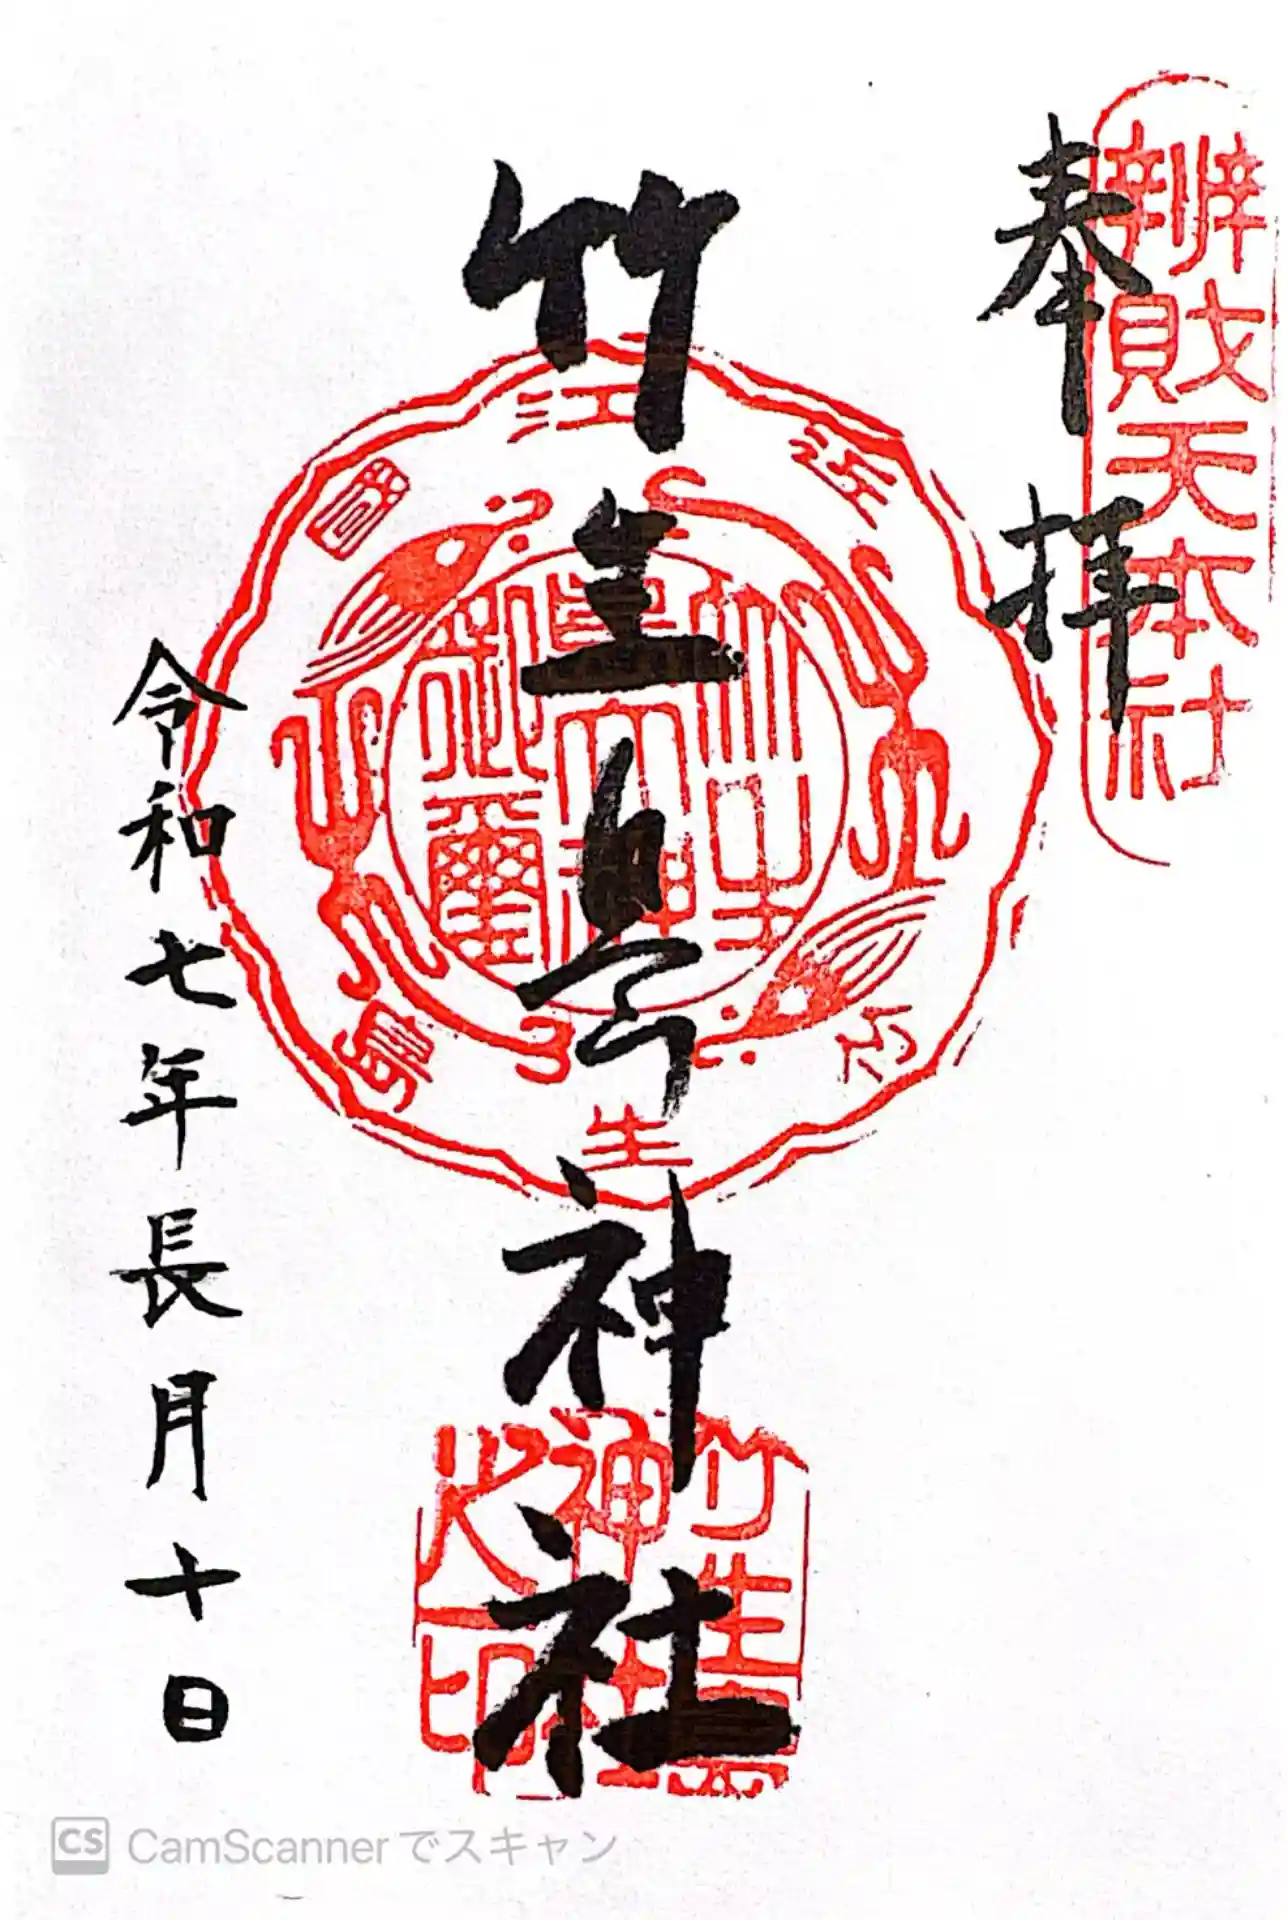 辨財天本社
奉拝
竹生島神社
近江國
竹生島
竹生島神社之印
令和七年長月十日
CS CamScannerでスキャン